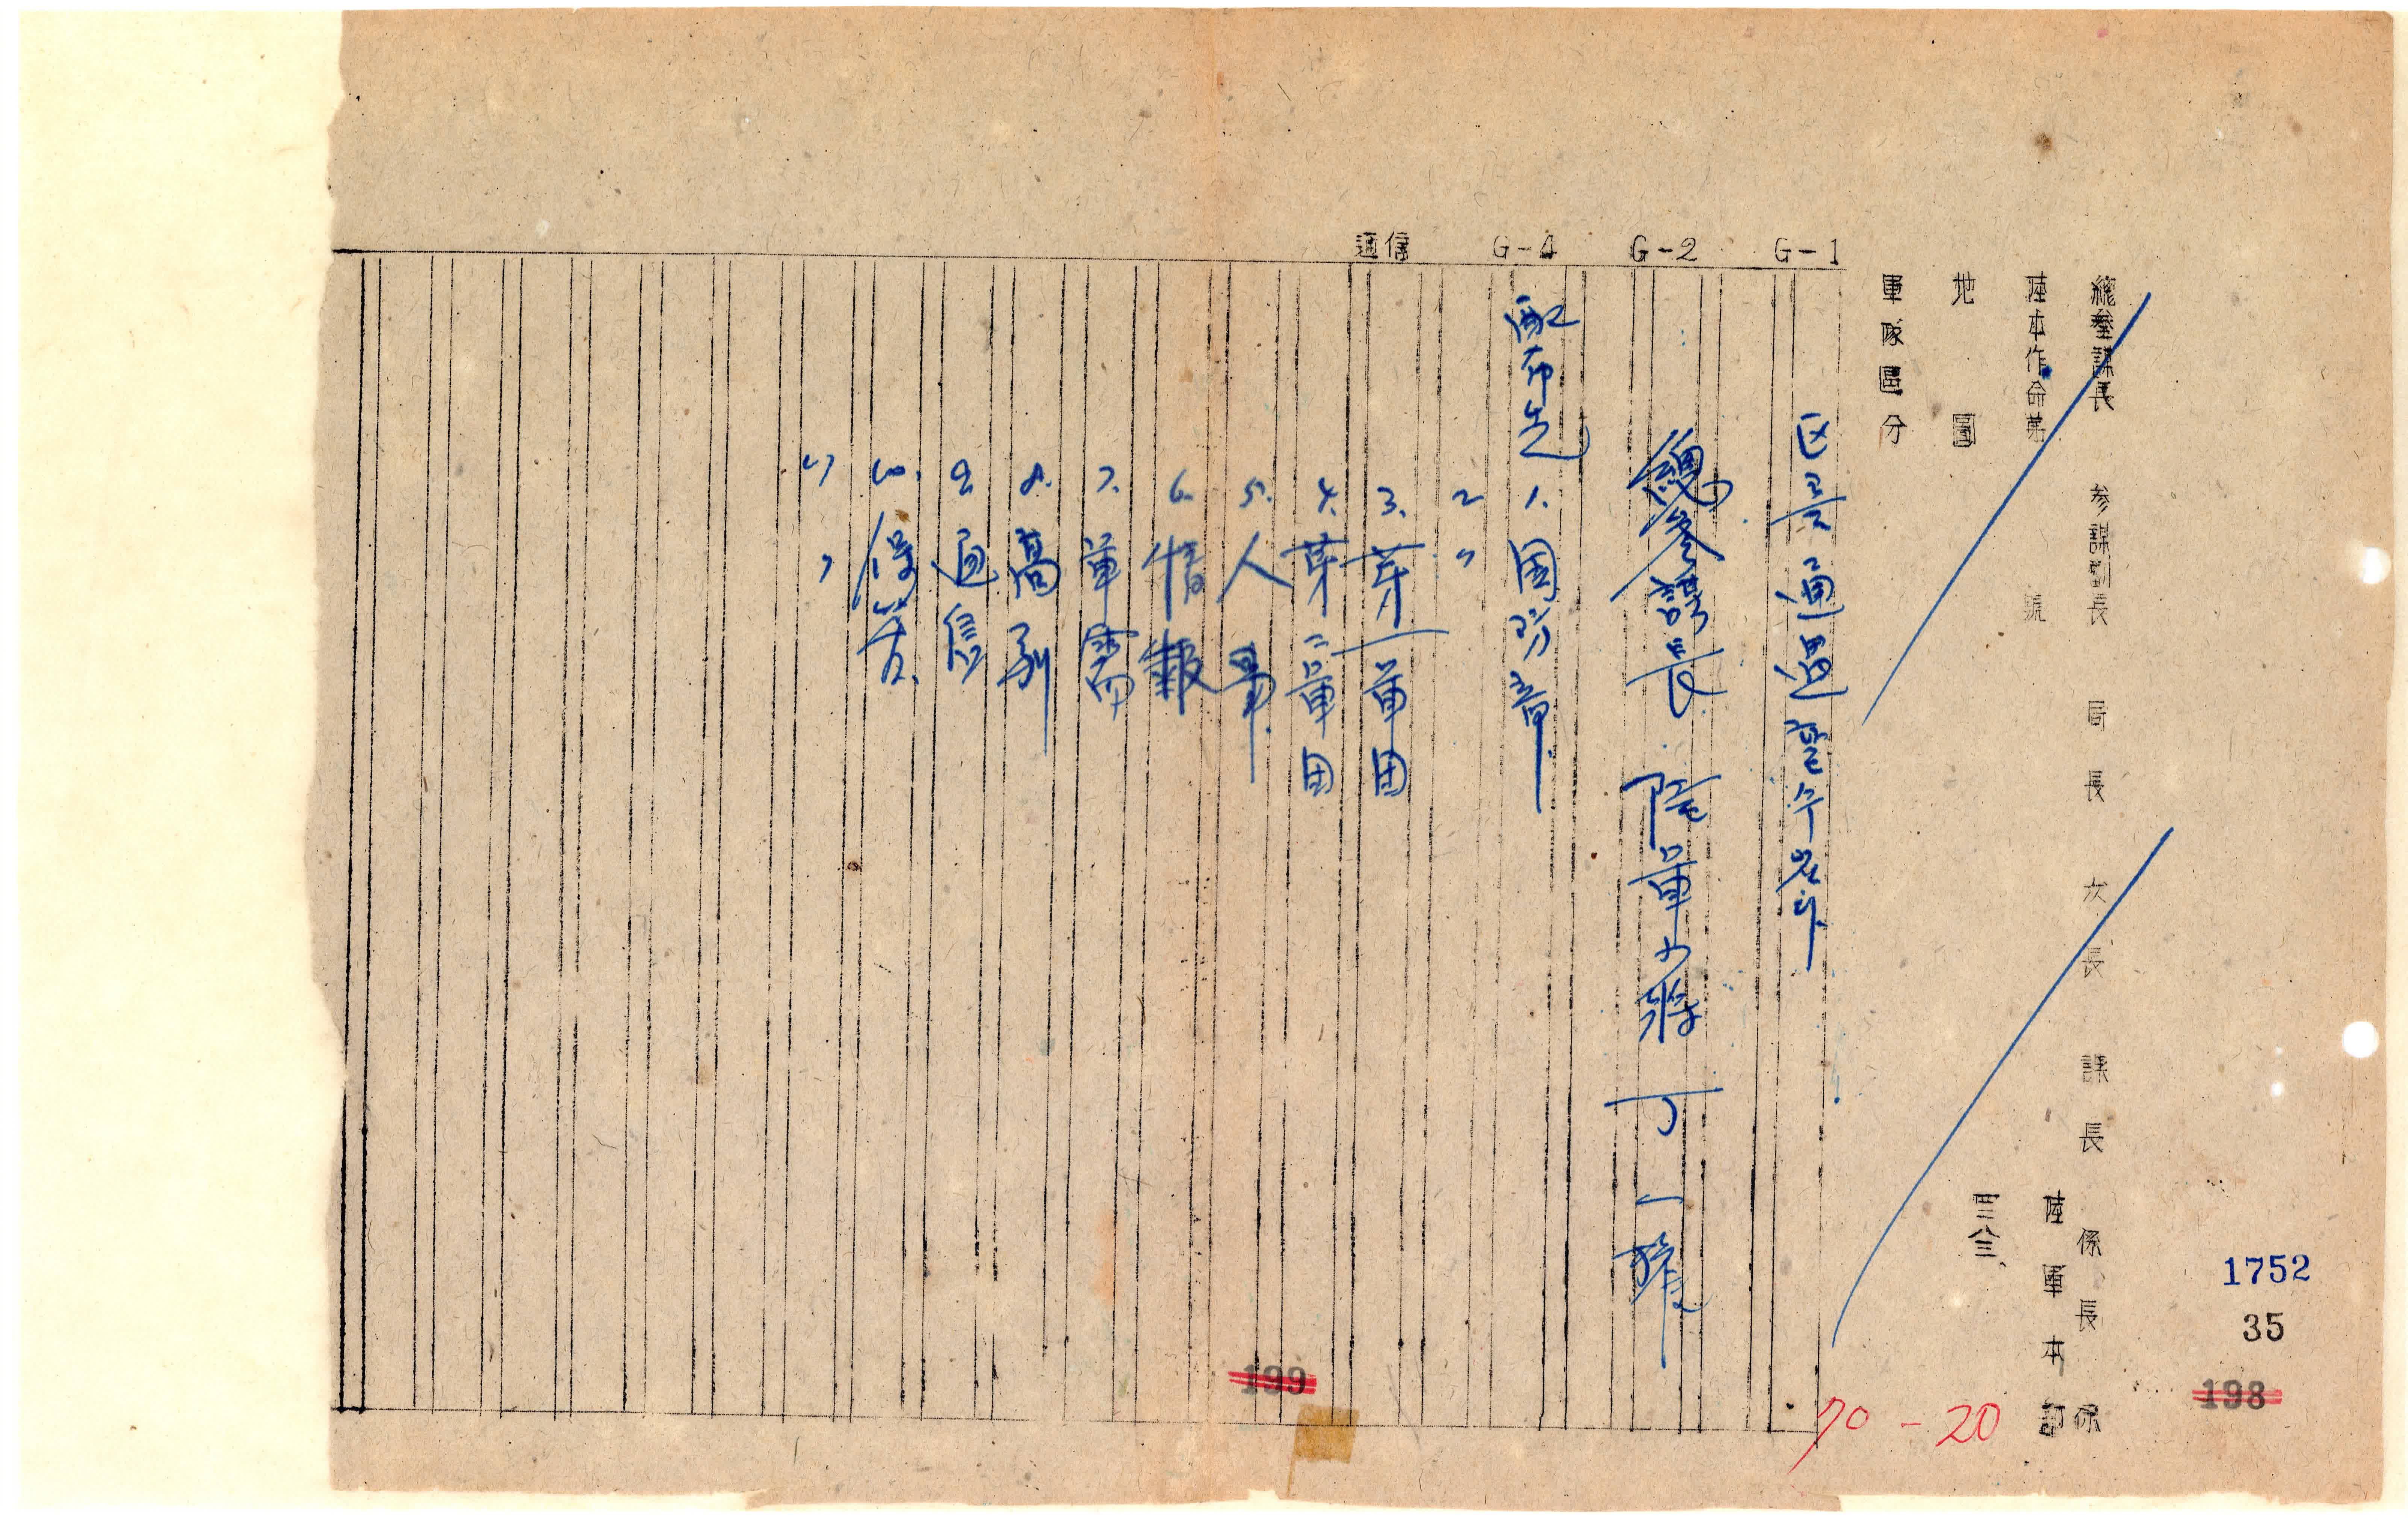 總參謀長 參謀副長 局長 次長 課長 係長 係
陸本作命第 號 陸軍本部
地圖 四二八三
軍隊區分
G-1
G-2
G-4
通信
總參謀長 陸軍少將 丁一權
配布先 1. 國防部
2 〃
3. 第一軍団
4. 第二軍団
5. 人事
6. 情報
7. 軍需
8. 高級
9. 通信
10. 
11 〃
1752
35
198
199
70-20